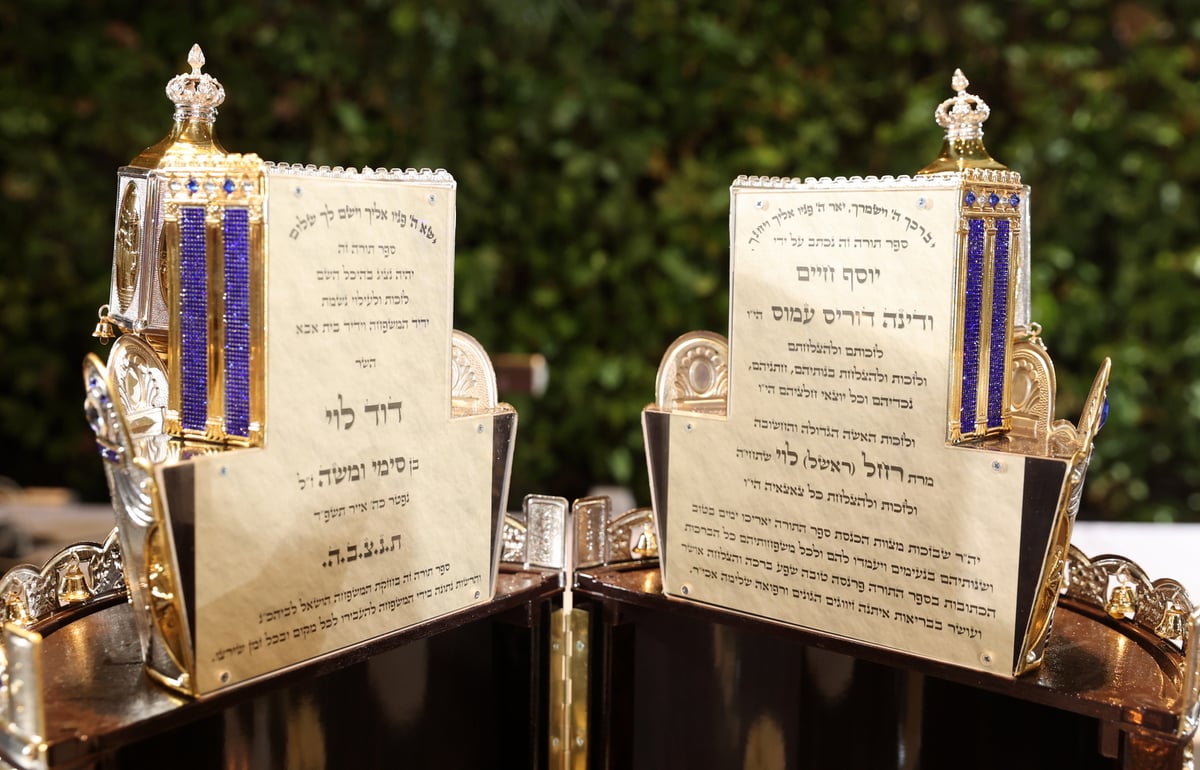 יברכך ה' וישמרך, יאר ה' פניו אליך ויחנך,
ספר תורה זה נכתב על ידי
יוסף חיים
ודינה דוריס עמוס הי"ו
לזכותם ולהצלחתם
ולזכות ולהצלחת בנותיהם, חתניהם,
נכדיהם וכל יוצאי חלציהם הי"ו
ולזכות האשה הגדולה והחשובה
מרת רחל (ראשל) לוי שתחי'ה
ולזכות ולהצלחת כל צאצאיה הי"ו
יה"ר שבזכות מצוות הכנסת ספר התורה יאריכו ימים בטוב
ושנותיהם בנעימים ויעמדו להם ולכל משפחותיהם כל הברכות
הכתובות בספר התורה פרנסה טובה שפע ברכה והצלחה אושר
ועושר בבריאות איתנה זיווגים הגונים ורפואה שלימה אכי"ר.
ישא ה' פניו אליך וישם לך שלום
ספר תורה זה
יהיה נציג בהיכל השם
לזכות ולעילוי נשמת
יחיד המשפחה ויחיד בית אבא
הש"ר
דוד לוי
בן סימי ומשה ז"ל
נפטר כה' אייר תשפ"ד
ת.נ.צ.ב.ה.
ספר תורה זה בחזקת המשפחה הושאל לביהכ"נ
והרשות נתונה בידי המשפחה להעבירו לכל מקום ובכל זמן שירצו.